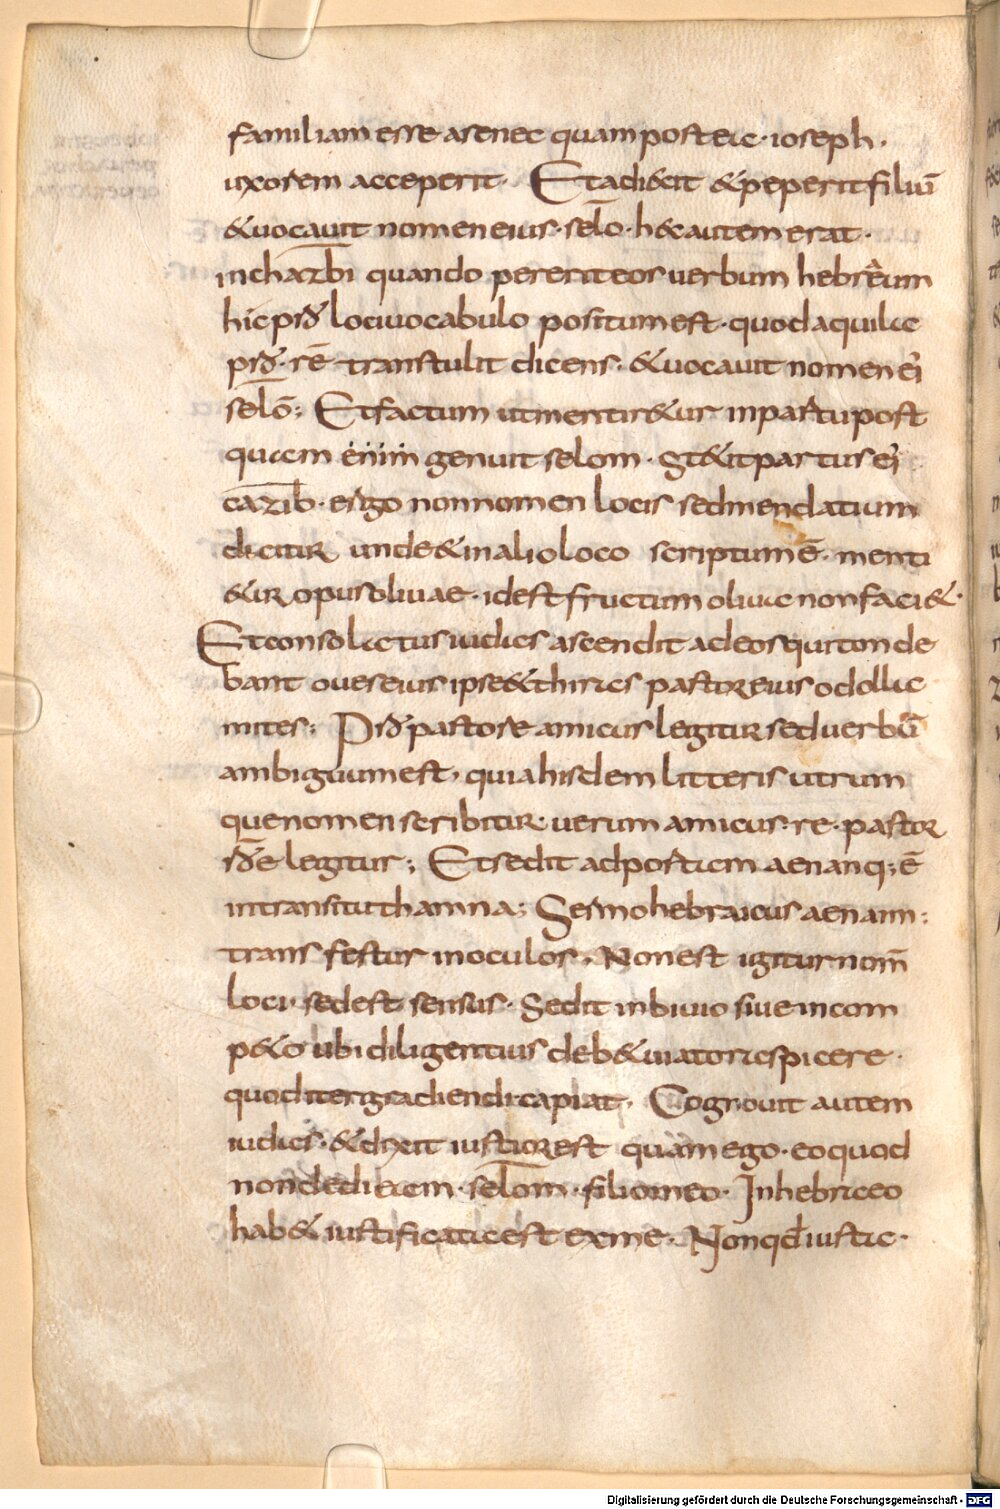 familiam esse asenec quam postea · ioseph ·
uxorem acceperit · Et adiecit & peperit filiū
& uocauit nomen eius · selō · h&c autem erat ·
in chazbi quando peperit eos uerbum hebreum
hic pro loci uocabulo positum est · quod aquila
pro · rē transtulit dicens · & uocauit nomen ei'
selō; Et factum ut mentir&ur in partu post
quam enim genuit selom · st&it partus ei'
cazib · ergo non nomen locis sed mendatium
dicitur unde & in alio loco scriptum ē · menti
&ur opus oliuae · id est fructum oliuae non faci& ·
Et consolatus iudas ascendit ad eos qui tonde
bant oues eius ipse & hiras pastor eius odolla
mites; Pro pastore amicus legitur sed uerbū
ambiguum est, quia hisdem litteris utrum
que nomen scribitur · uerum amicus · re · pastor
rōe legitur; Et sedit ad portam aenan q; ē
in transitu thamna; Sermo hebraicus aenaim:
transfertur in oculos · Non est igitur nom̄
loci · sed est sensus · Sedit in biuio siue in com
p&o ubi diligentius deb& uiator aspicere ·
quod iter gradiendi capiat · Cognouit autem
iudas · & dixit iustior est quam ego · eo quod
non dederam · selom · filio meo · In hebraeo
hab& iustificata est ex me · Non qd iusta ·
Digitalisierung gefördert durch die Deutsche Forschungsgemeinschaft - DFG